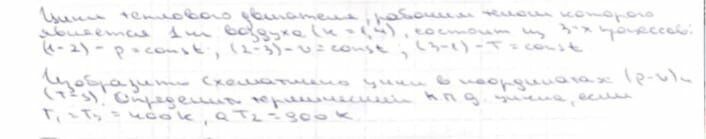 Цикл теплового двигателя, рабочим телом которого
является 1 кг воздуха (к = 1,4), состоит из 3-х процессов:
(1-2) - p = const, (2-3) - v = const; (3-1) - T = const
Изобразить схематично цикл в координатах (p-v) и
(T-s). Определить термический КПД. цикла, если
T₁ = T₃ = 400 K, а T₂ = 900 K.